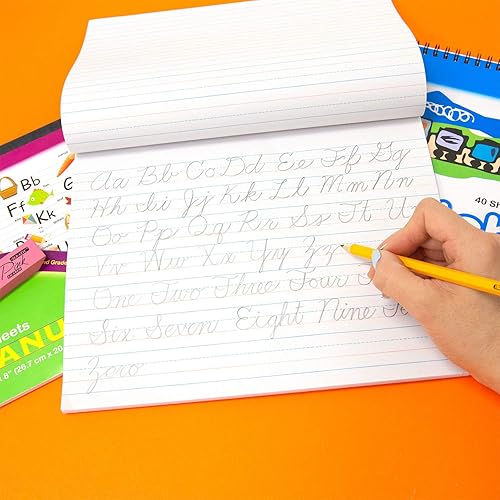 Aa Bb Cc Dd Ee Ff Gg
Hh Ii Jj Kk Ll Mm Nn
Oo Pp Qq Rr Ss Tt U
Vv Ww Xx Yy Zz
One Two Three Four
Six Seven Eight Nine
Zoro
Bb
Ff
Kk
Pink
40 Sh
nd Grade
eets
ANU
8" (26.7 cm x 20